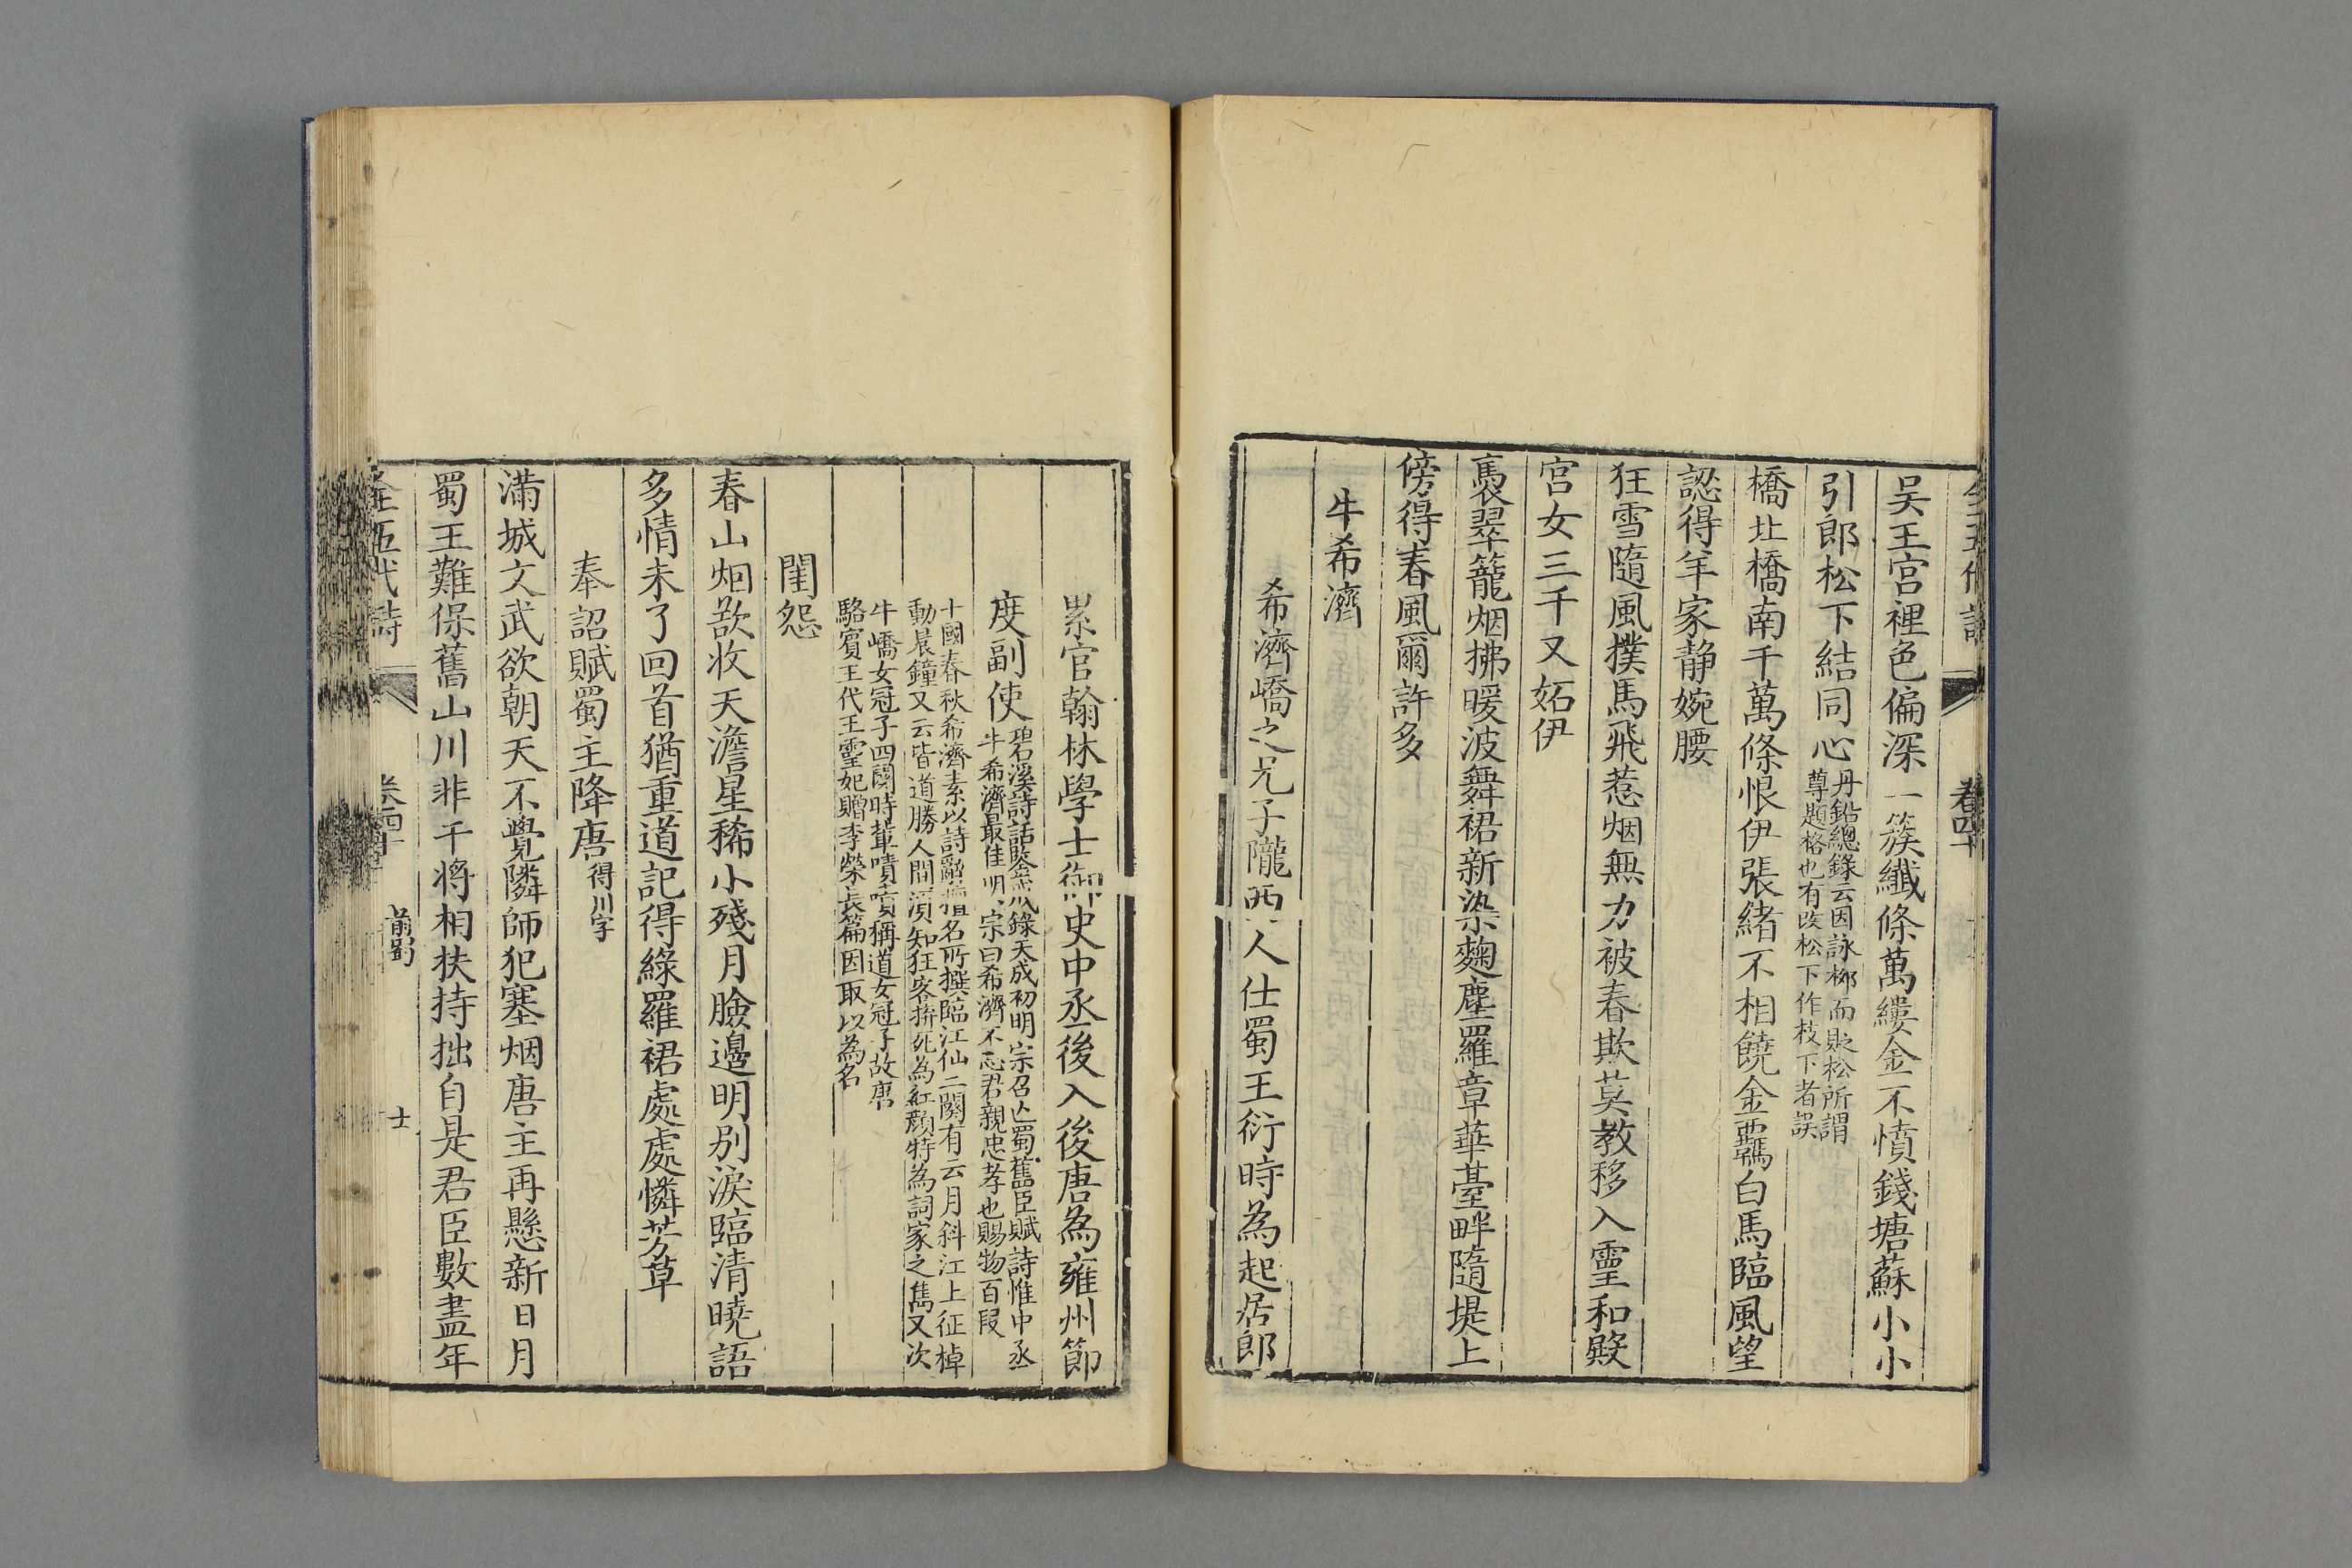 吴王宫裡色偏深一簇纖條萬縷金不憤錢塘蘇小小
引郎松下結同心
丹鉛總錄云因詠栁而貶松所謂
尊題格也有改松下作枝下者誤
橋北橋南千萬條恨伊張緒不相饒金覊白馬臨風望
認得羊家静婉腰
狂雪隨風撲馬飛惹烟無力被春欺莫教移入靈和殿
宫女三千又妬伊
褭翠籠烟拂暖波舞裙新染麴塵羅章華臺畔隨堤上
傍得春風爾許多
牛希濟
希濟嶠之兄子隴西人仕蜀王衍時為起居郎
累官翰林學士御史中丞後入後唐為雍州節
度副使
碧溪詩話鑒戒錄天成初明宗召亡蜀舊臣賦詩惟中丞
牛希濟最佳明宗曰希濟不忘君親忠孝也賜物百段
十國春秋希濟素以詩辭擅名所撰臨江仙二闋有云月斜江上征棹
動晨鐘又云皆道勝人間須知狂客拚死為紅顏特為詞家之雋又次
牛嶠女冠子四闋時輩嘖嘖稱道女冠子故唐
駱賓王代王靈妃贈李榮長篇因取以為名
閨怨
春山烟欲收天澹星稀小殘月臉邊明别淚臨清曉語
多情未了回首猶重道記得綠羅裙處處憐芳草
奉詔賦蜀主降唐得川字
滿城文武欲朝天不覺隣師犯塞烟唐主再懸新日月
蜀王難保舊山川非干将相扶持拙自是君臣數盡年
全五代詩 卷四十 前蜀 士